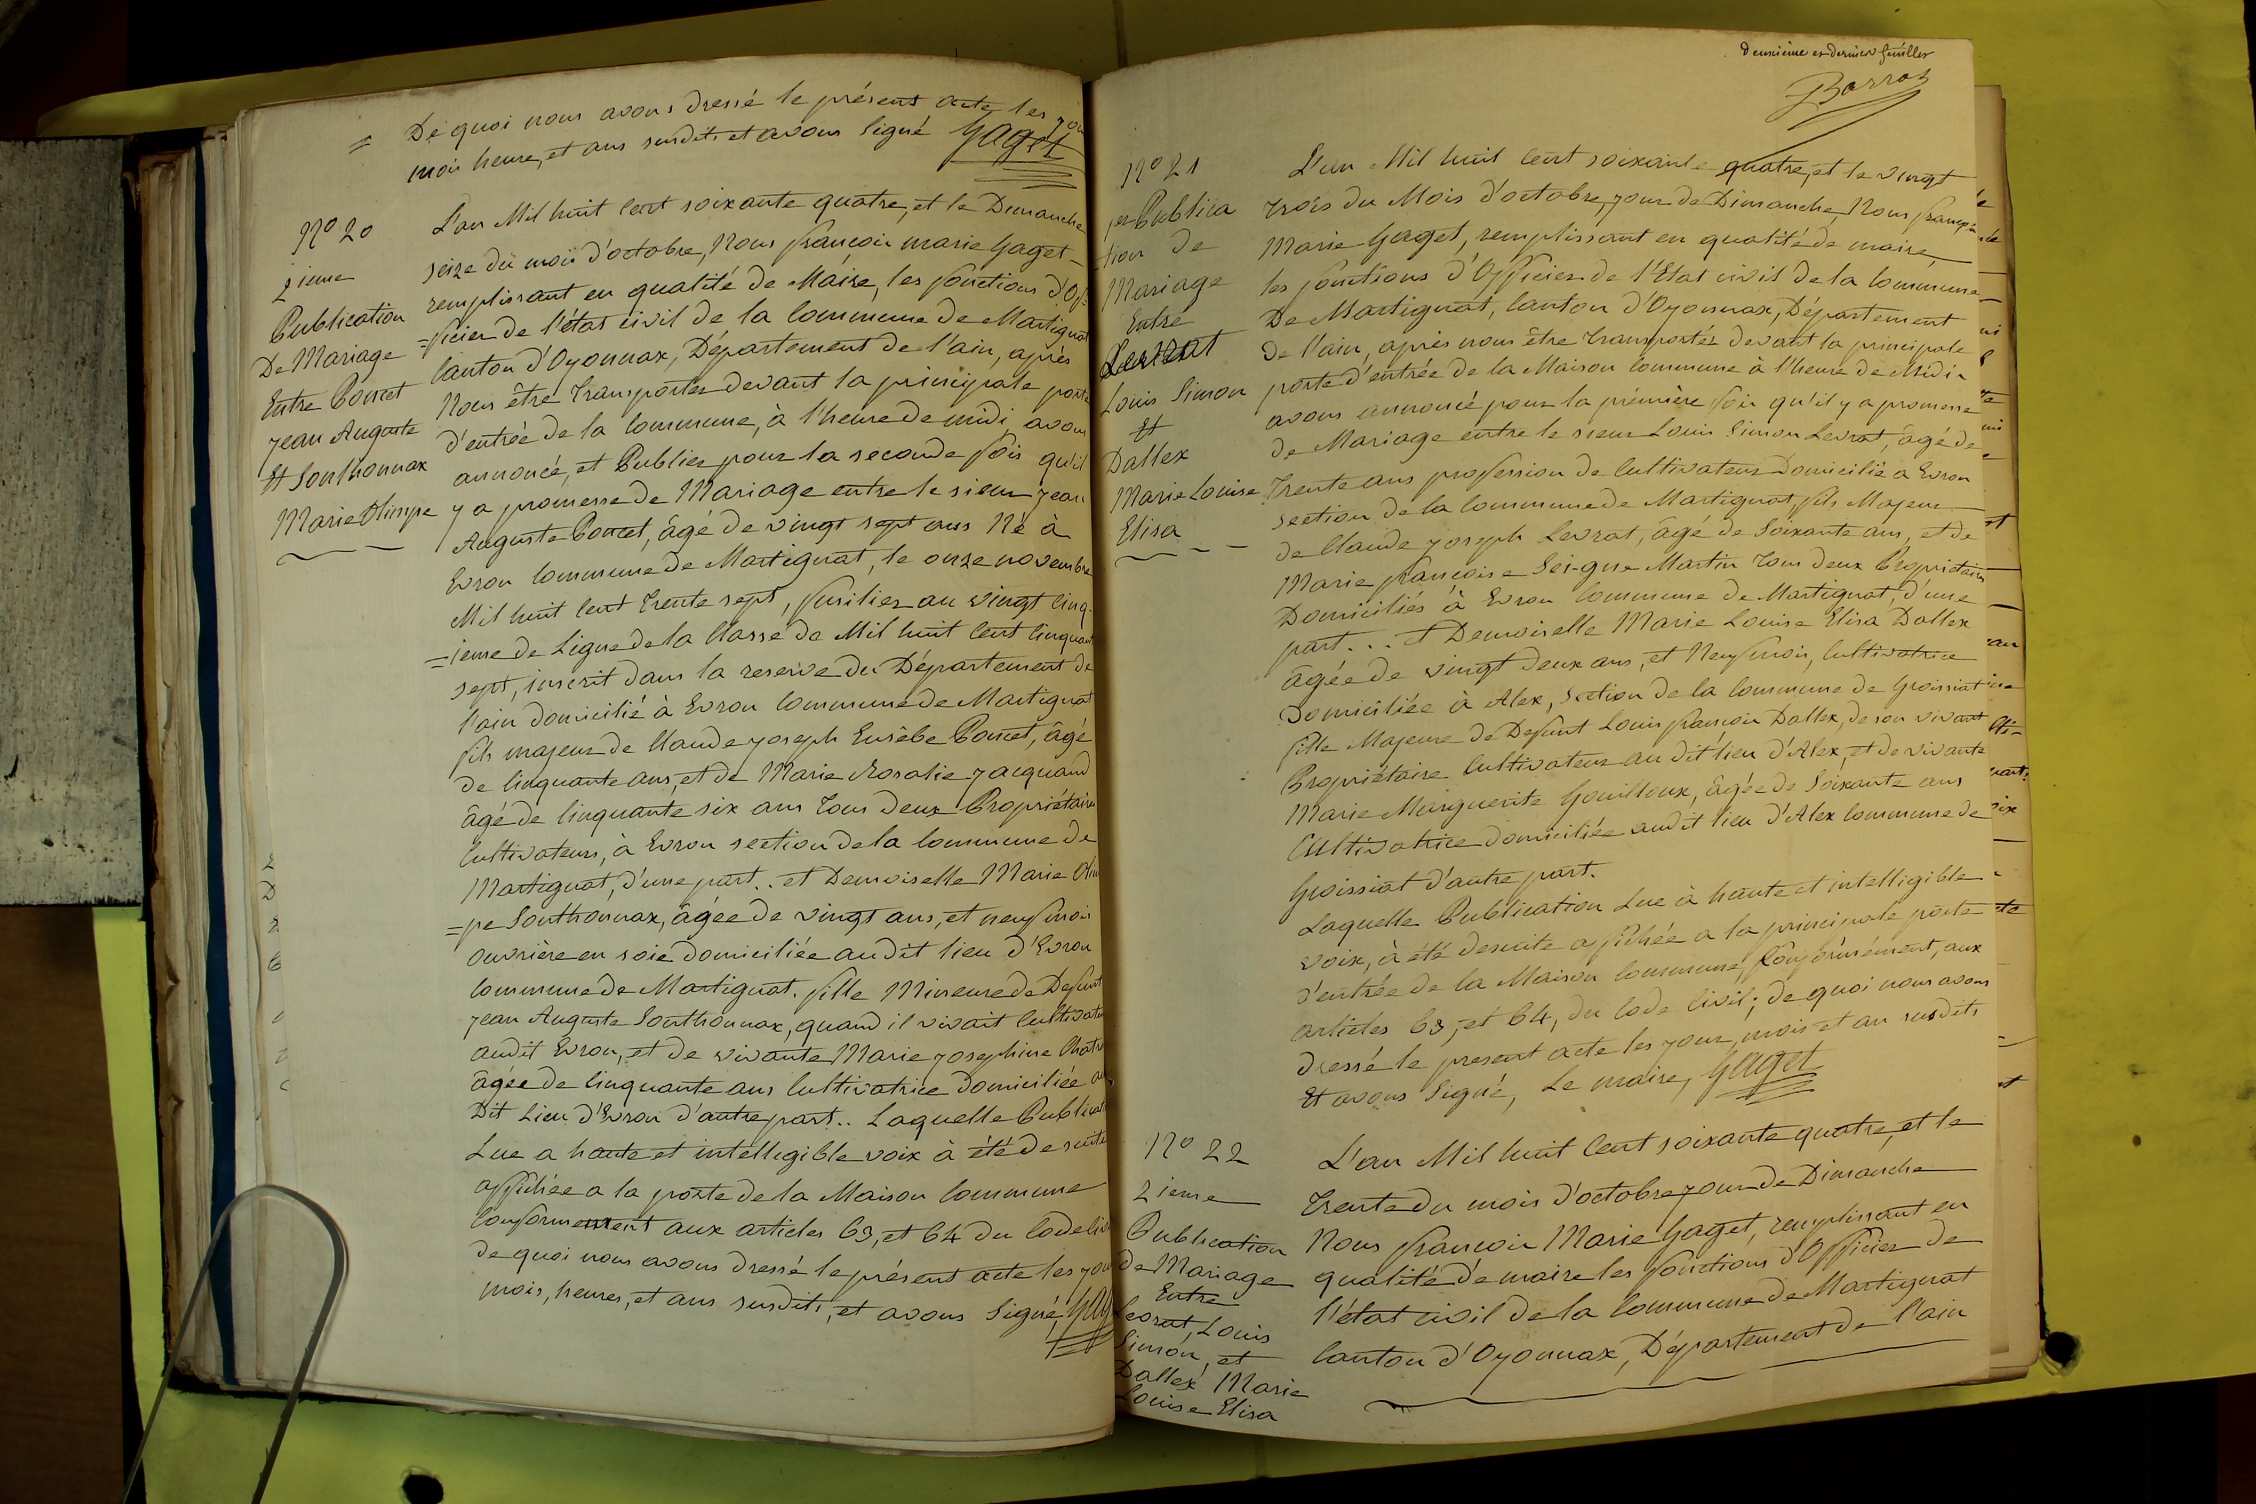 = De quoi nous avons dressé le présent acte, les jou
mois heure, et ans susdits et avons signé Gaget
N° 20
2ieme
Publication
De Mariage
Entre Poncet
jean Auguste
Et Sonthonnax
Marie Olimpe
L'an Mil huit Cent soixante quatre, et le Dimanche
seize du mois d'octobre, Nous françois marie Gaget
remplissant en qualité de Maire, les fonctions d'Of=
=ficier de l'état civil de la Commune de Martignat
Canton d'Oyonnax, Département de l'ain, après
Nous être Transporter devant la principale porte
d'entrée de la Commune, à l'heure de midi, avons
annoncé, et Publier pour la seconde fois qu'il
y a promesse de Mariage entre le sieur jean
Auguste Poncet, âgé de vingt sept ans Né à
Evron Commune de Martignat, le onze novembre
Mil huit Cent Trente sept, fusilier au vingt Cinq-
=ieme de Ligne de la Classe de Mil huit Cent Cinquant
sept, inscrit dans la reserve du Département de
l'ain domicilié à Evron Commune de Martignat
fils majeur de Claude joseph Eusèbe Poncet, âgé
de Cinquante ans, et de Marie Rosalie jacquand
âgé de Cinquante six ans Tous deux Propriétaires
Cultivateurs, à Evron section de la Commune de
Martignat, d'une part.. et Demoiselle Marie Olim
=pe Sonthonnax, âgée de vingt ans, et neuf mois
ouvrière en soie domiciliée audit lieu d'Evron
Commune de Martignat. fille Mineure de Defunt
jean Auguste Sonthonnax, quand il vivait Cultivateu
audit Evron, et de vivante Marie josephine
âgée de Cinquante ans Cultivatrice domiciliée au
Dit Lieu d'Evron d'autre part.. Laquelle Publicat
Lue a haute et intelligible voix à été de suite
affichée a la porte de la Maison Commune
Conformement aux articles 63, et 64 du Code Civ
de quoi nous avons dressé le présent acte les jou
mois, heures, et ans susdits, et avons signé, Gag
deuxième et dernier feuillet
N° 21
1er Publica
=tion de
Mariage
Entre
Levrat
Louis Simon
Et
Dallex
Marie Louise
Elisa
L'an Mil huit Cent soixante quatre, et le vingt
trois du Mois d'octobre, jour de Dimanche, Nous françois
Marie Gaget, remplissant en qualité de maire,
les fonctions d'Officier de l'Etat civil de la Commune
De Martignat, Canton d'Oyonnax, Département
de l'ain, après nous être Transportés devant la principale
porte d'entrée de la Maison Commune à l'heure de Midi
avons annoncé pour la première fois qu'il y a promesse
de Mariage entre le sieur Louis Simon Levrat, âgé de
Trente ans profession de Cultivateur Domicilié a Evron
section de la Commune de Martignat, fils Majeur
de Claude joseph Levrat, âgé de Soixante ans, et de
Marie françoise Seigne Martin Tous deux Propriétaires
Domiciliés à Evron Commune de Martignat, d'une
part... et Demoiselle Marie Louise Elisa Dallex
âgée de vingt deux ans, et Neuf mois, Cultivatrice
Domiciliée à Alex, Section de la Commune de Groissiat
fille Majeure de Defunt Louis françois Dallex, de son vivant
Propriétaire Cultivateur audit lieu d'Alex, et de vivante
Marie Marguerite Gouilloux, âgée de Soixante ans
Cultivatrice domiciliée audit lieu d'Alex Commune de
Groissiat d'autre part.
Laquelle Publication Lue à haute et intelligible
voix, à été desuite affichée a la principale porte
d'entrée de la Maison Commune, Conformément, aux
articles 63, et 64, du Code Civil; de quoi nous avons
dressé le present acte les jour, mois et an susdits
Et avons Signé, Le maire, Gaget
N° 22
2ieme
Publication
de Mariage
Entre
Levrat, Louis
Simon, et
Dallex Marie
Louise Elisa
L'an Mil huit Cent soixante quatre, et le
Trente du mois d'octobre jour de Dimanche
Nous françois Marie Gaget, remplissant en
qualité de maire les fonctions d'Officier de
l'état civil de la Commune de Martignat
Canton d'Oyonnax, Département de l'ain